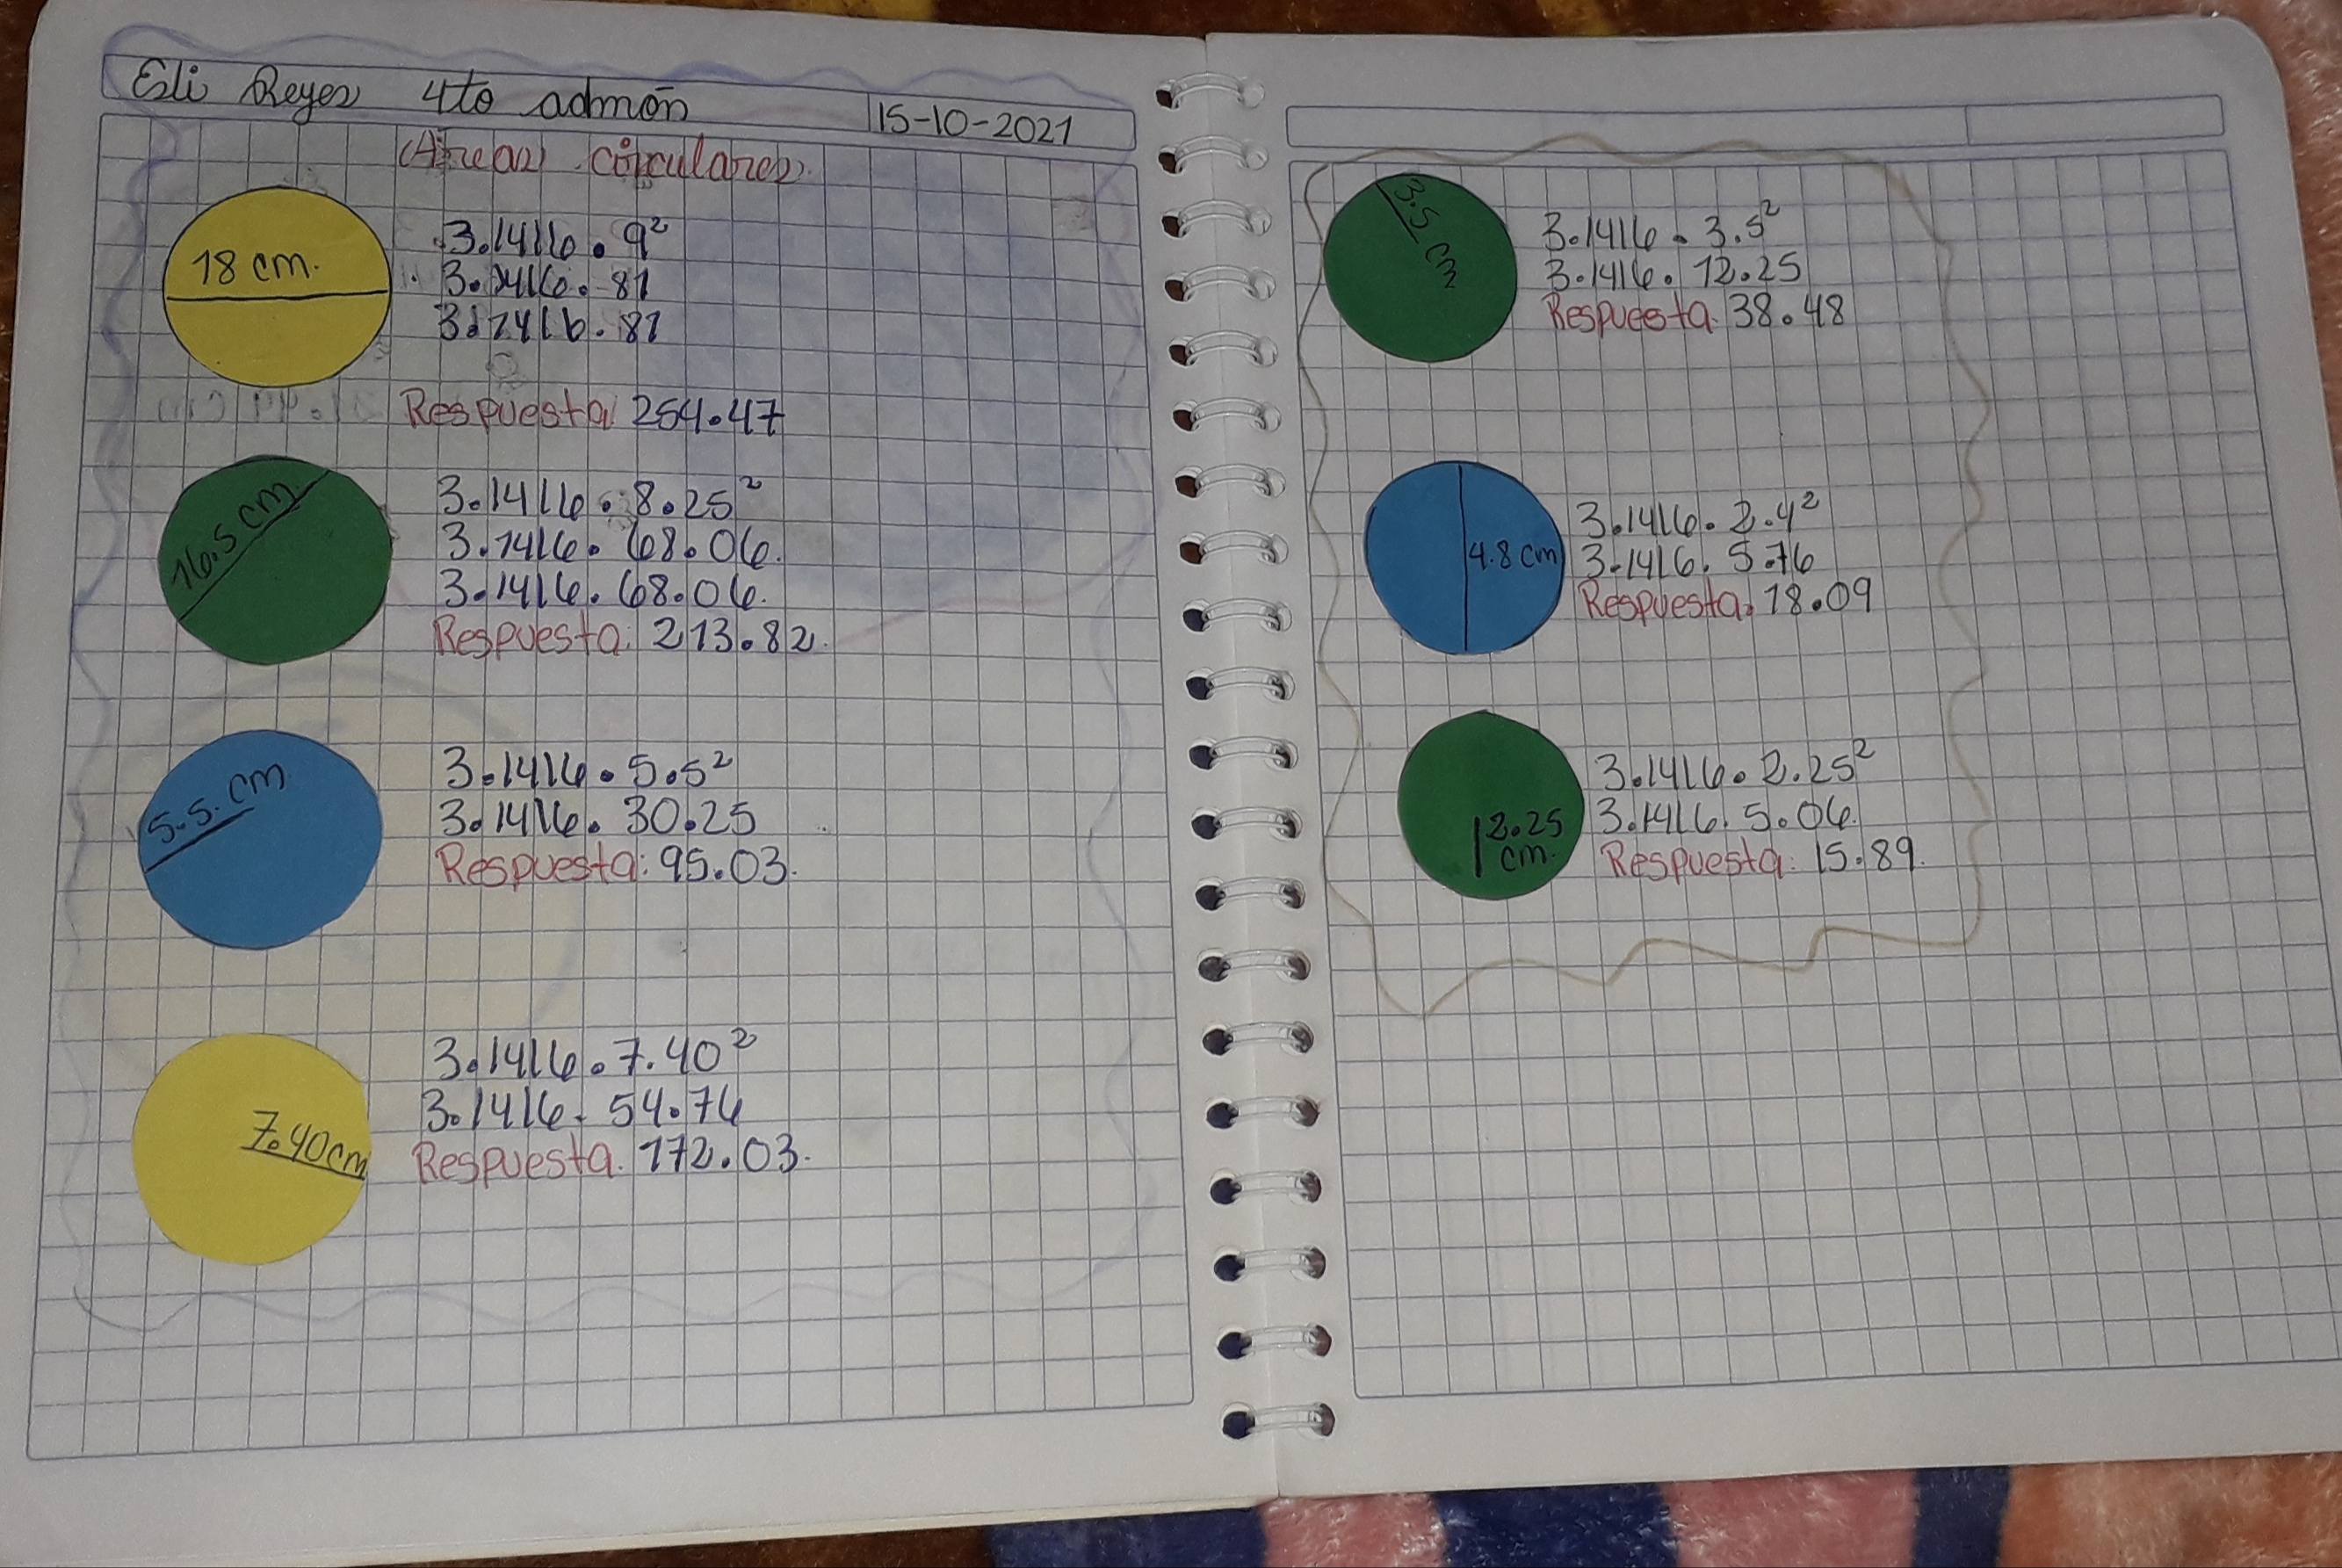 Esli Reyes 4to admón 15-10-2021
Áreas circulares
18 cm.
3.1416 . 9²
3.1416 . 81
3.1416 . 81
Respuesta 254.47
16.5 cm
3.1416 . 8.25²
3.1416 . 68.06.
3.1416 . 68.06.
Respuesta: 213.82.
5.5. cm
3.1416 . 5.5²
3.1416 . 30.25
Respuesta: 95.03.
7.40 cm
3.1416 . 7.40²
3.1416 . 54.76
Respuesta. 172.03.
3.5 cm
3.1416 . 3.5²
3.1416 . 12.25
Respuesta. 38.48
4.8 cm
3.1416 . 2.4²
3.1416 . 5.76
Respuesta. 18.09
2.25
cm.
3.1416 . 2.25²
3.1416 . 5.06.
Respuesta: 15.89.